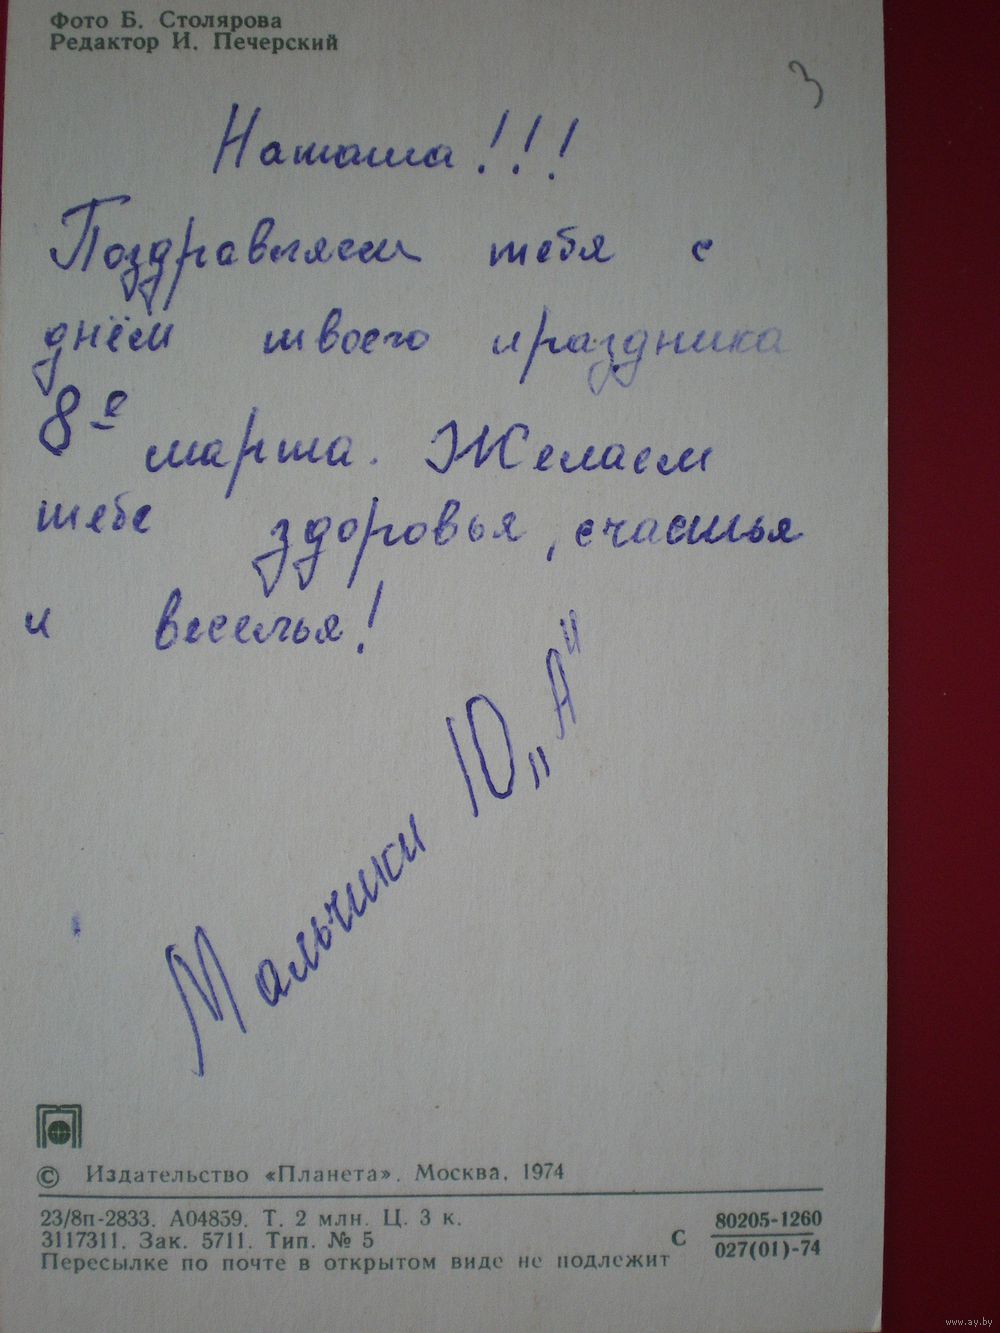 Фото Б. Столярова
Редактор И. Печерский
3
Наташа!!!
Поздравляем тебя с
днём твоего праздника
8е марта. Желаем
тебе здоровья, счастья
и веселья!
Мальчики 10 „А"
© Издательство «Планета». Москва, 1974
23/8п-2833. А04859. Т. 2 млн. Ц. 3 к.
3117311. Зак. 5711. Тип. № 5
Пересылке по почте в открытом виде не подлежит
С 80205-1260
027(01)-74
www.ay.by